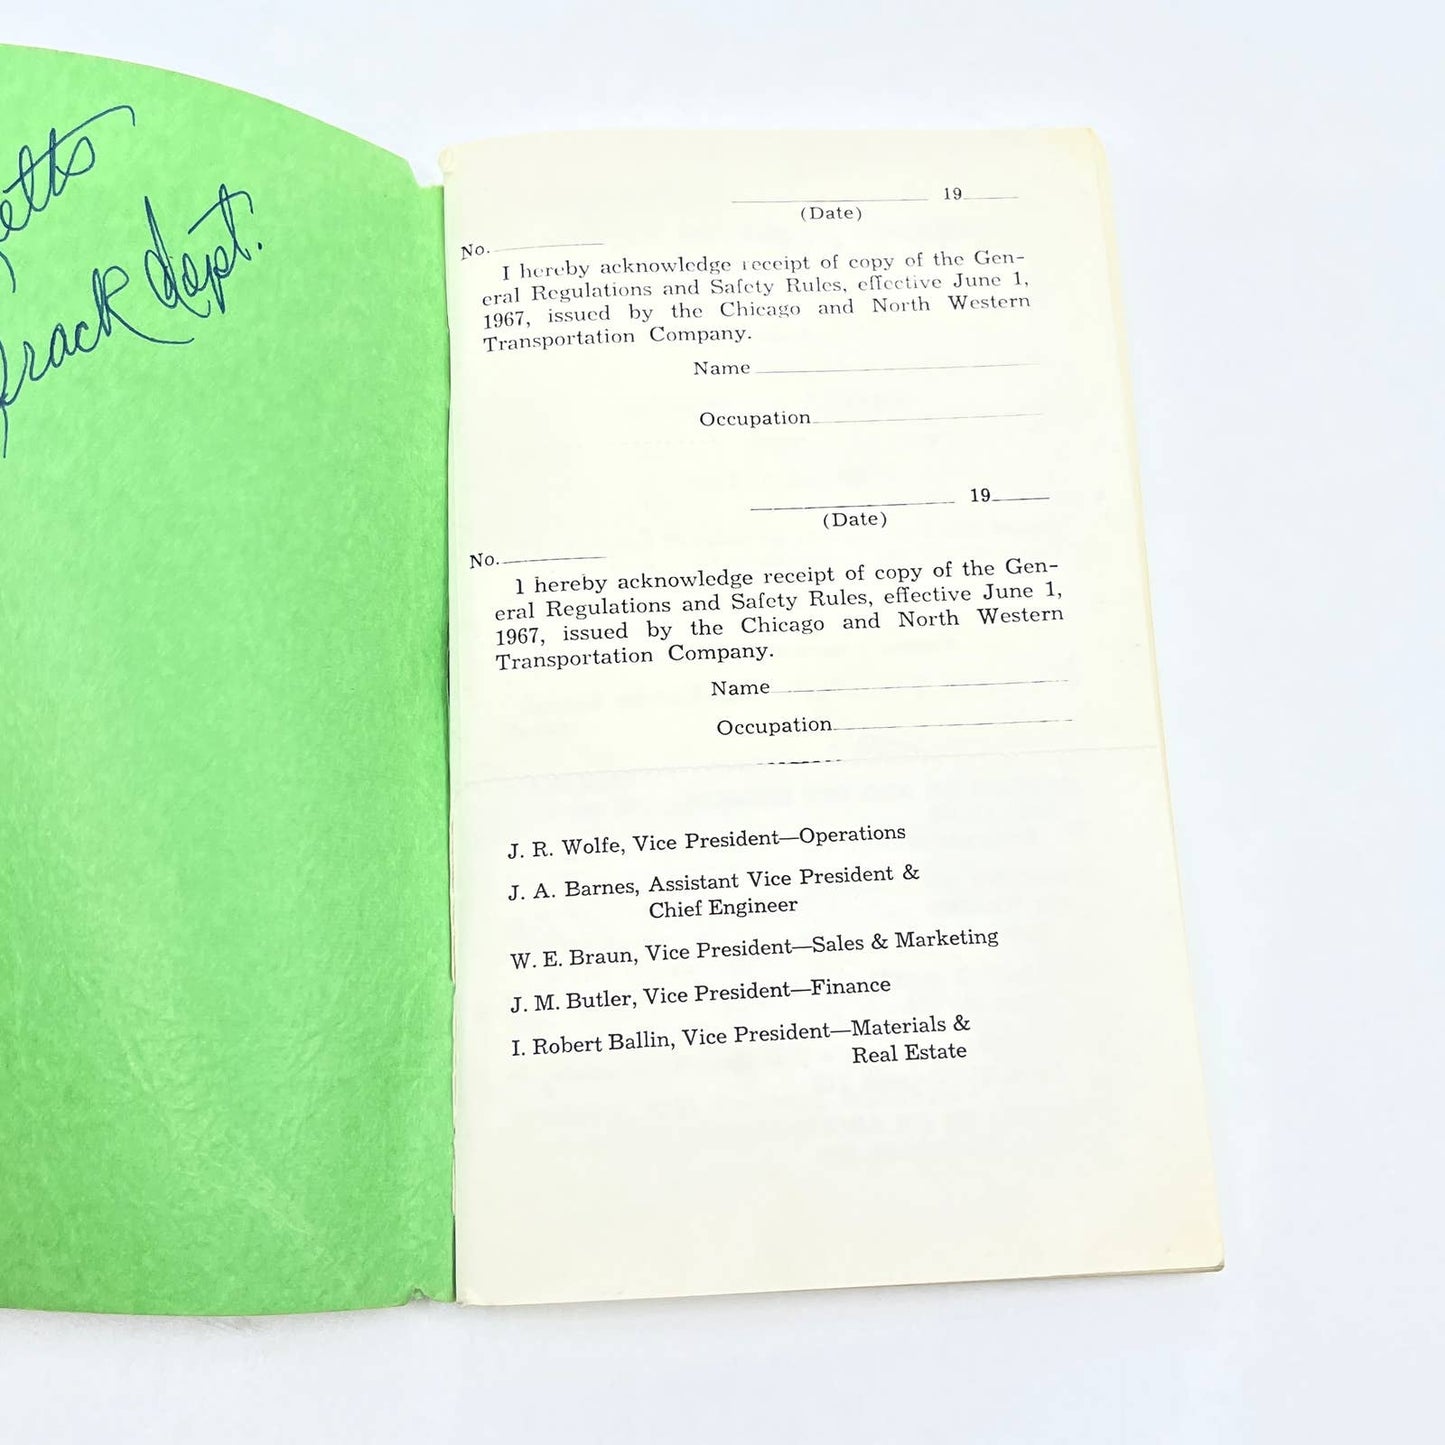 Track dept.
19
(Date)
No.
I hereby acknowledge receipt of copy of the Gen-
eral Regulations and Safety Rules, effective June 1,
1967, issued by the Chicago and North Western
Transportation Company.
Name
Occupation
19
(Date)
No.
I hereby acknowledge receipt of copy of the Gen-
eral Regulations and Safety Rules, effective June 1,
1967, issued by the Chicago and North Western
Transportation Company.
Name
Occupation
J. R. Wolfe, Vice President—Operations
J. A. Barnes, Assistant Vice President &
Chief Engineer
W. E. Braun, Vice President—Sales & Marketing
J. M. Butler, Vice President—Finance
I. Robert Ballin, Vice President—Materials &
Real Estate